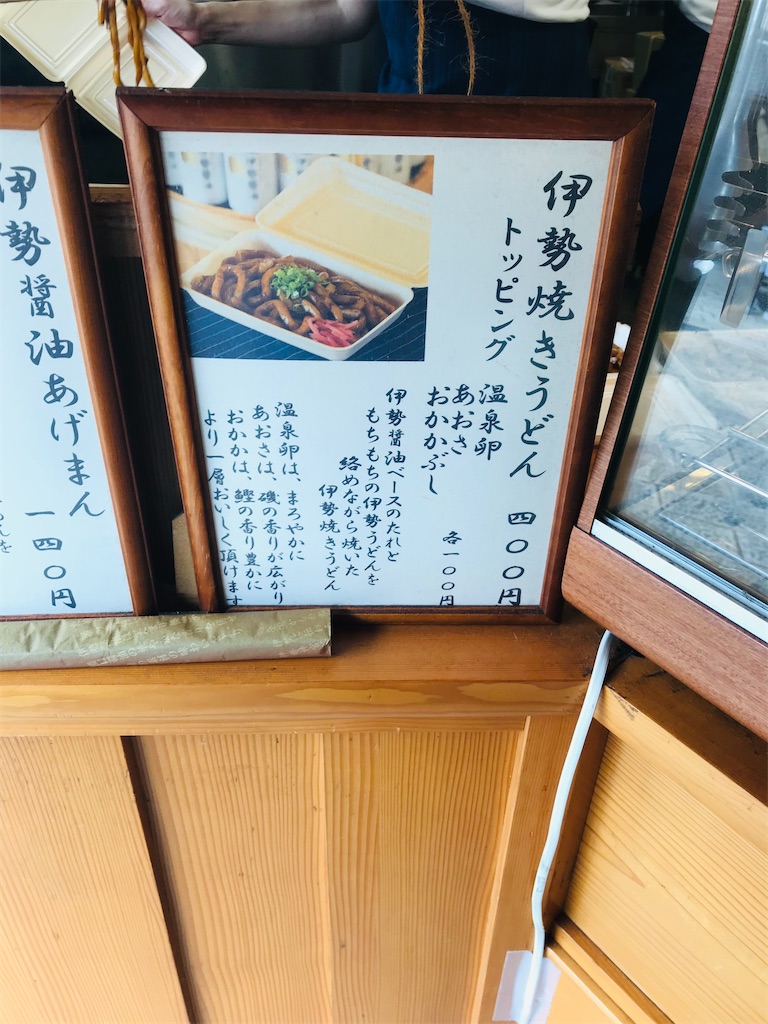 伊勢焼きうどん 四〇〇円
トッピング
温泉卵
あおさ
おかかぶし
各一〇〇円
伊勢醤油ベースのたれと
もちもちの伊勢うどんを
絡めながら焼いた
伊勢焼きうどん
温泉卵は、まろやかに
あおさは、磯の香りが広がり
おかかは、鰹の香り豊かに
より一層おいしく頂けます
伊勢醤油あげまん
一四〇円